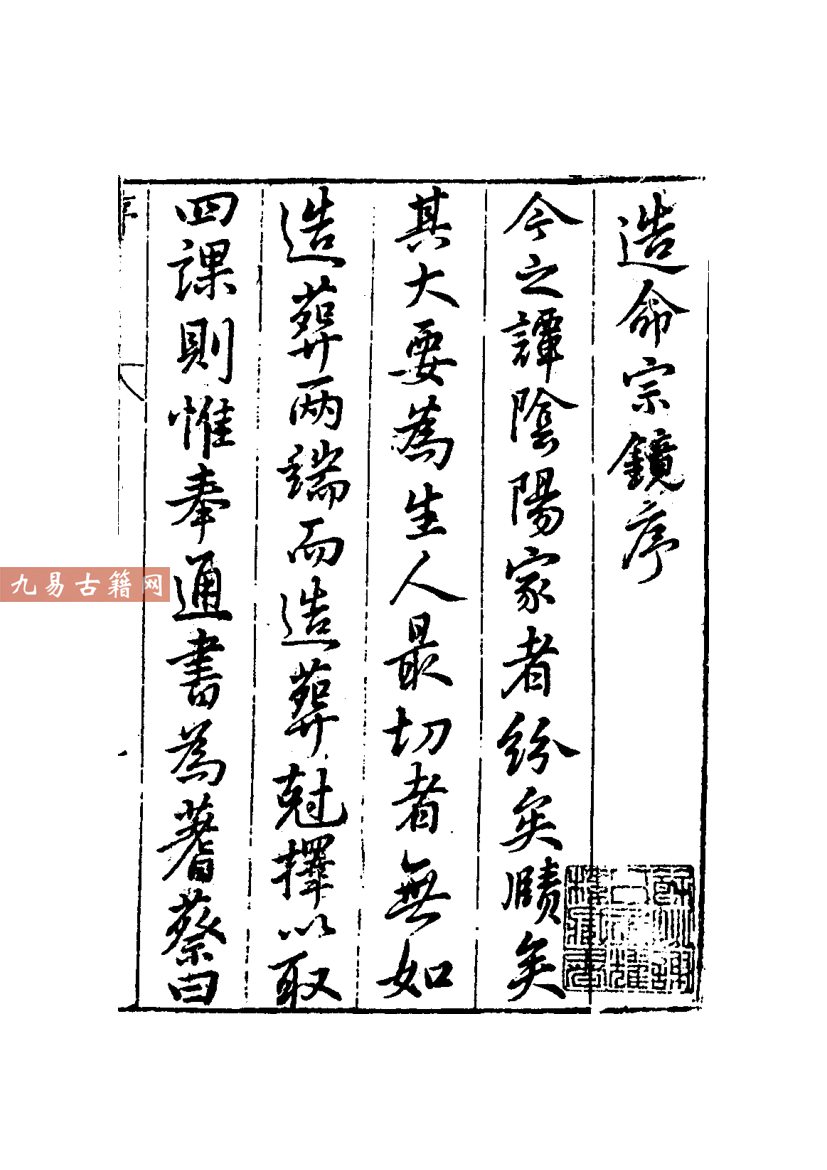 造命宗鏡序
今之譚陰陽家者紛矣賾矣
其大要為生人最切者無如
造葬兩端而造葬尅擇以取
四課則惟奉通書為蓍蔡曰
序
九易古籍网